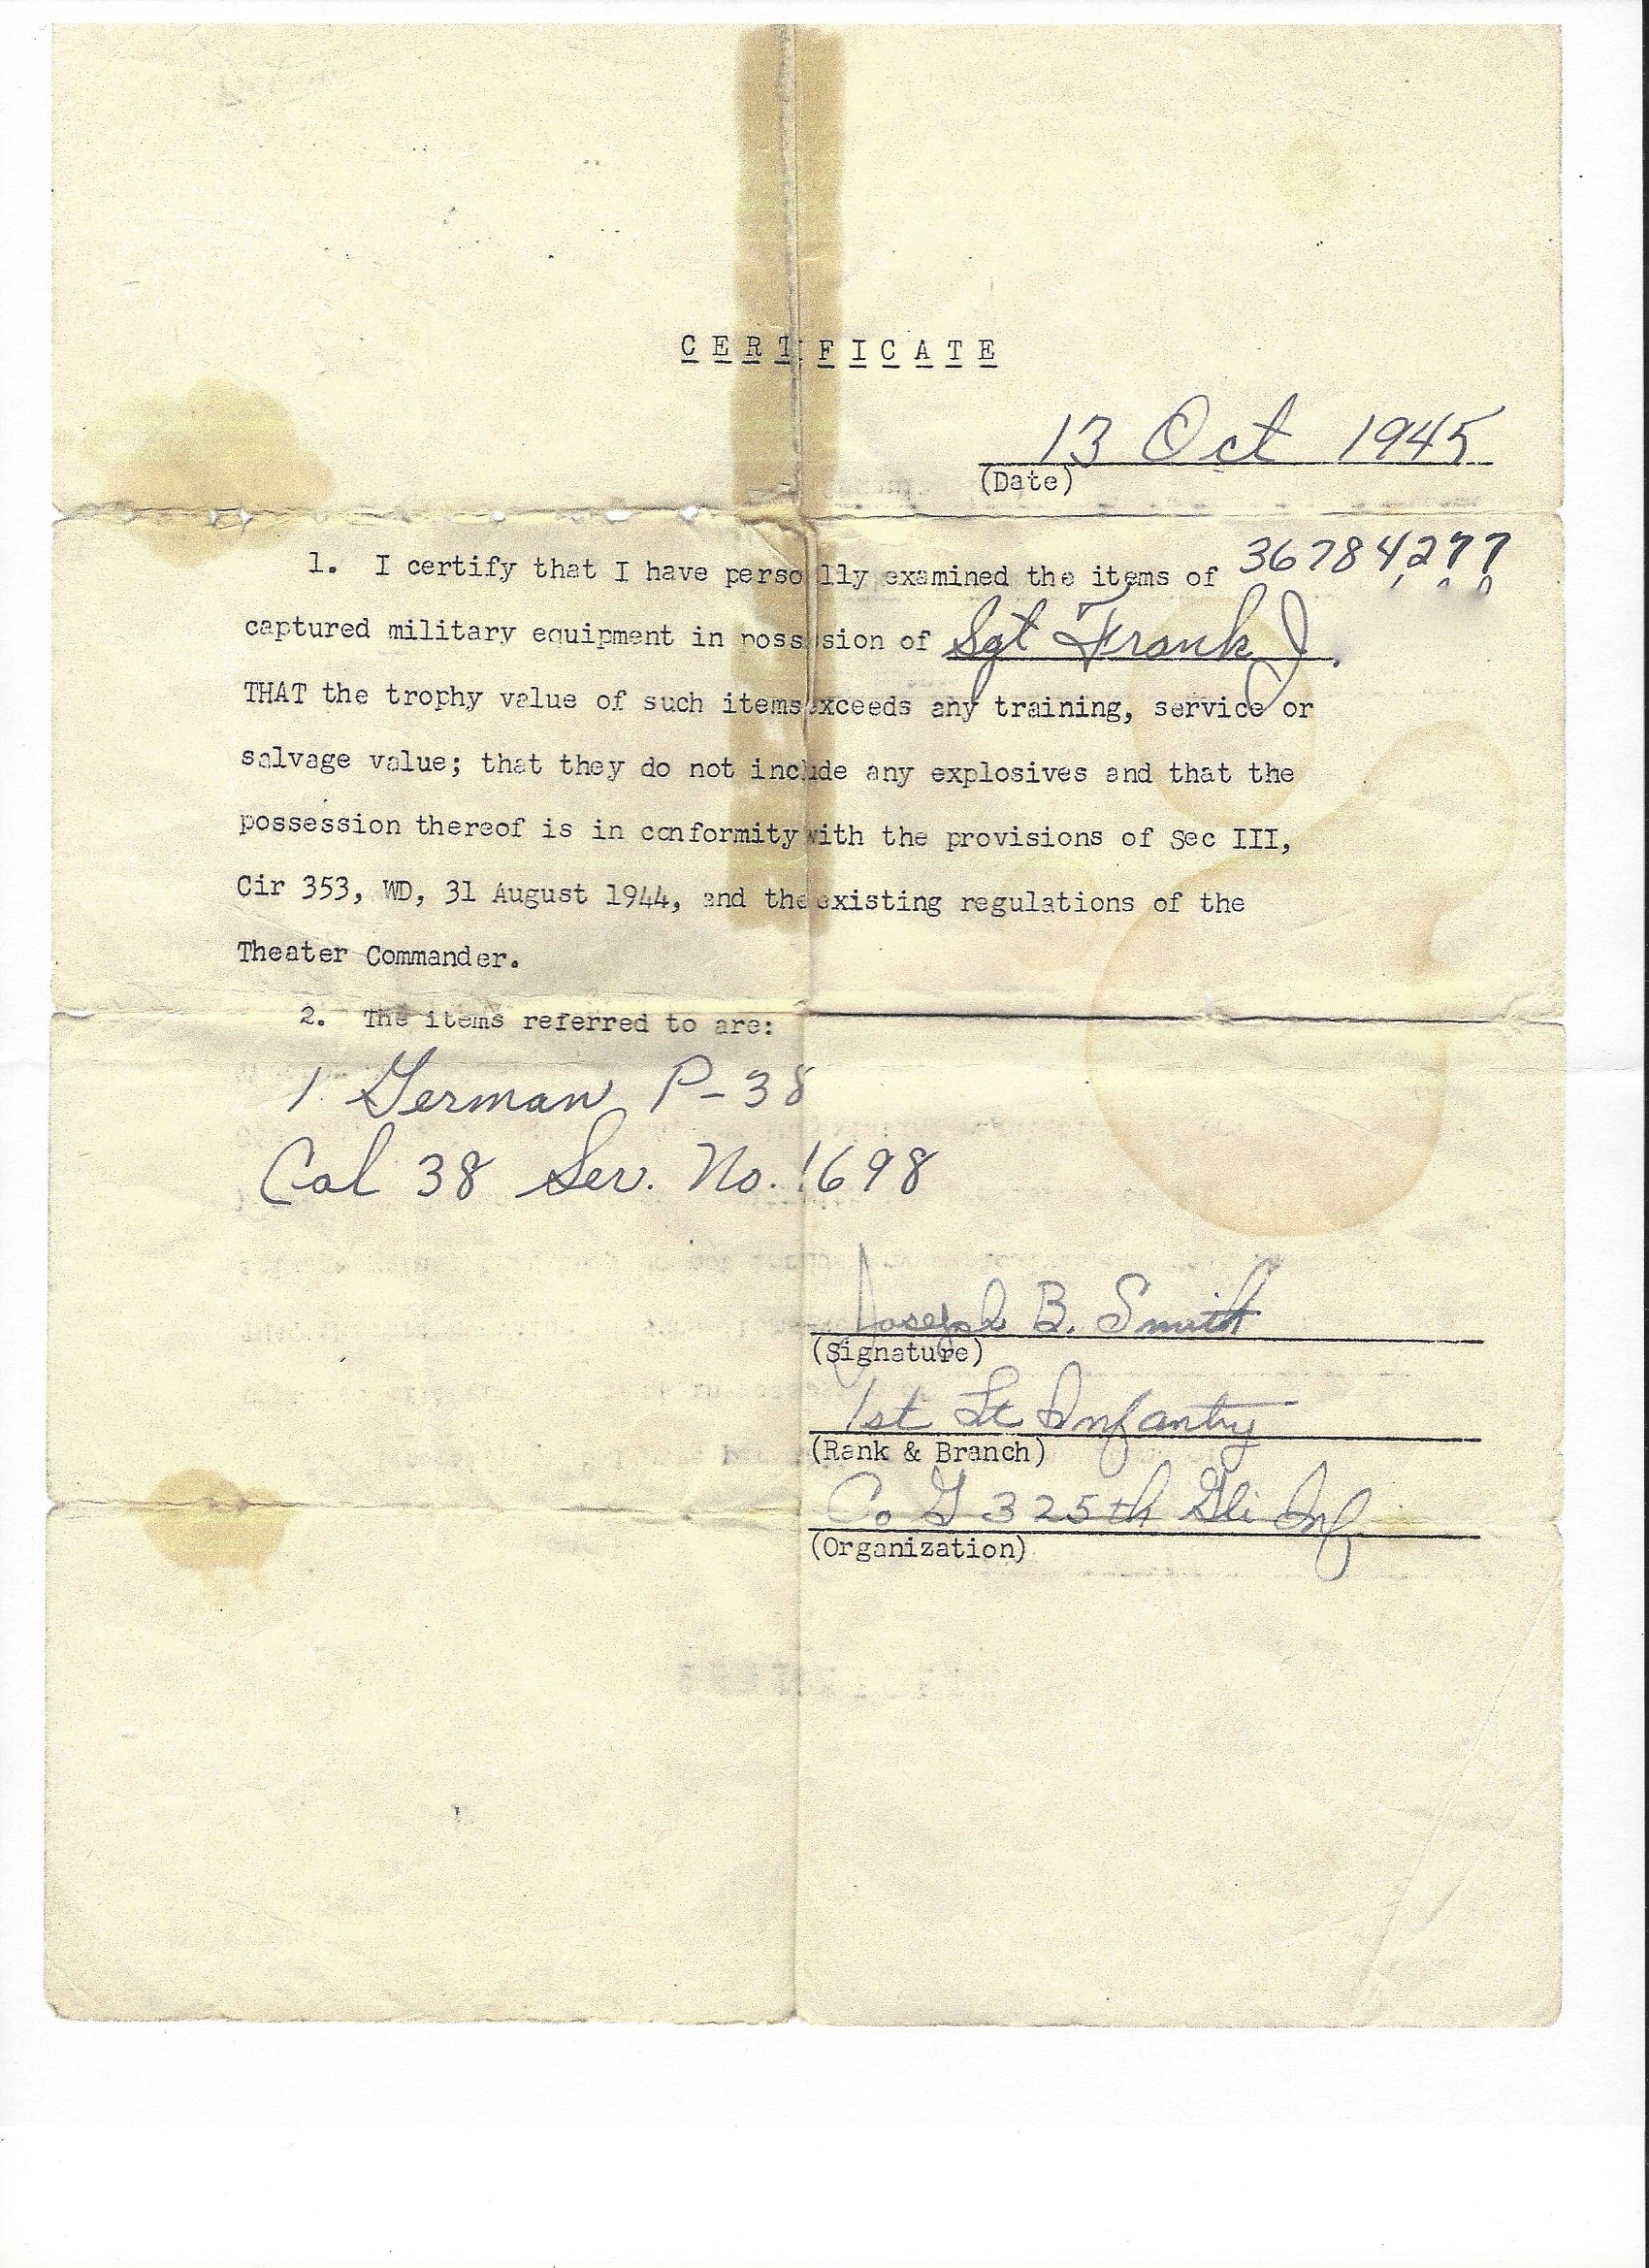 CERTIFICATE
13 Oct 1945
(Date)
1. I certify that I have perso lly examined the items of 36784277
captured military equipment in poss sion of Sgt Frank J.
THAT the trophy value of such items exceeds any training, service or
salvage value; that they do not include any explosives and that the
possession thereof is in conformity with the provisions of Sec III,
Cir 353, WD, 31 August 1944, and the existing regulations of the
Theater Commander.
2. The items referred to are:
1 German P-38
Cal 38 Ser. No. 1698
Joseph B. Smith
(Signature)
1st Lt Infantry
(Rank & Branch)
Co G 325th Gli Inf
(Organization)